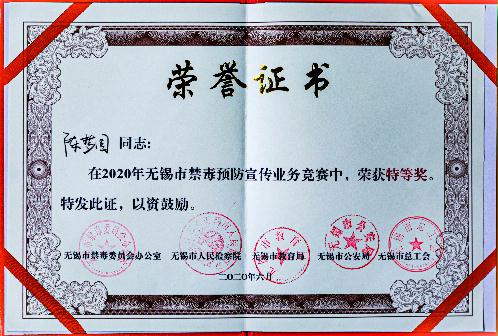 荣誉证书
陈梦园 同志:
在2020年无锡市禁毒预防宣传业务竞赛中，荣获特等奖。
特发此证，以资鼓励。
无锡市禁毒委员会办公室 无锡市人民检察院 无锡市教育局 无锡市公安局 无锡市总工会
二〇二〇年六月